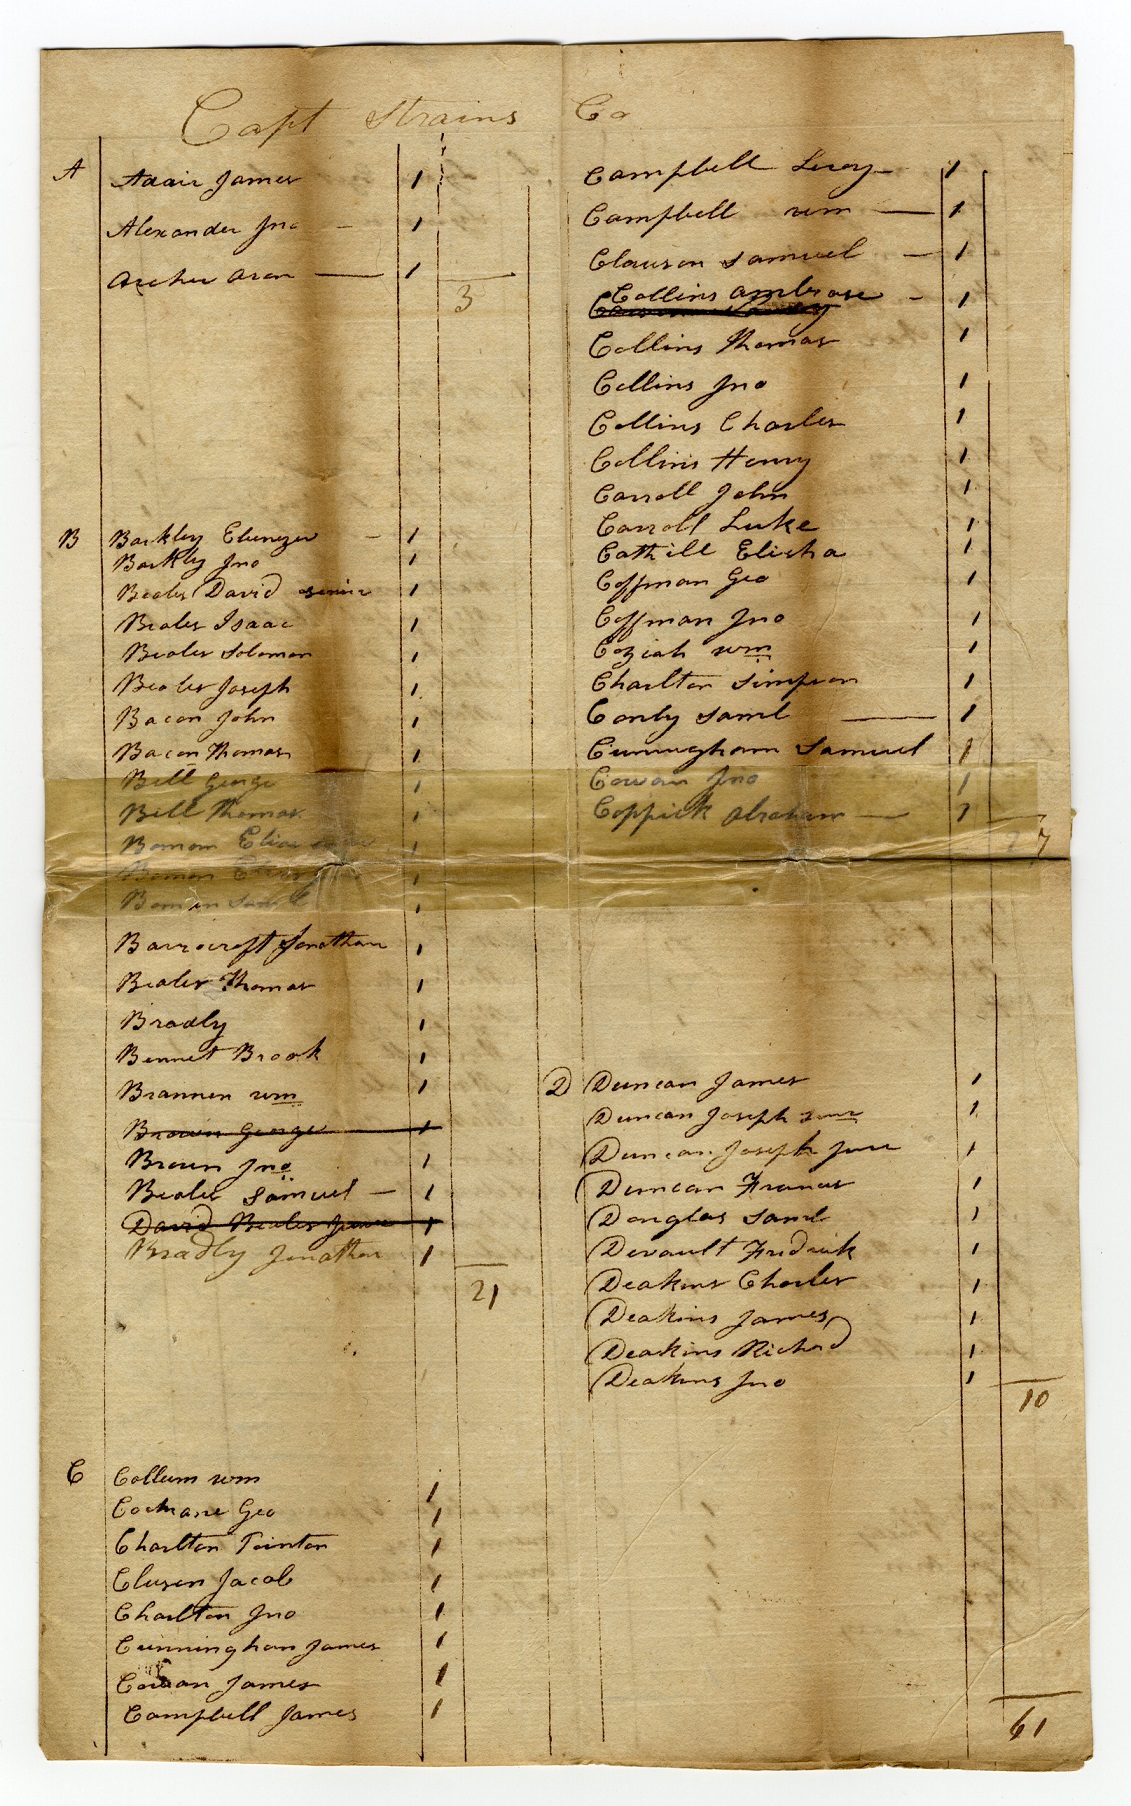 Capt Strains Co
A Adair James 1
Alexander Jno - 1
Archer Aron — 1
3
B Barkley Ebenezer - 1
Barkly Jno 1
Beales David senior 1
Beales Isaac 1
Beales Solomon 1
Beales Joseph 1
Bacon John 1
Bacon Thomas 1
Bell George 1
Bell Thomas 1
Boman Elias 1
Boman 1
Boman Saml 1
Barrocroft Jonathan 1
Beales Thomas 1
Bradly 1
Bennet Brook 1
Brannen wm 1
Brown George 1
Brown Jno 1
Beales Samuel — 1
David Beales June 1
Bradly Jonathan 1
21
C Collum wm 1
Cochrane Geo 1
Charlton Pointon 1
Cluson Jacob 1
Charlton Jno 1
Cunningham James 1
Cowan James 1
Campbell James 1
Campbell Leroy - 1
Campbell wm — 1
Clauson Samuel — 1
Collins Ambrose - 1
Collins Thomas 1
Collins Jno 1
Collins Charles 1
Collins Henry 1
Carroll John 1
Carroll Luke 1
Cathill Elisha 1
Coffman Geo 1
Coffman Jno 1
Coziah wm 1
Charlton Simpson 1
Conly Saml — 1
Cunnugham Samuel 1
Cowan Jno 1
Coppick Abraham — 1
27
D Duncan James 1
Duncan Joseph senr 1
Duncan Joseph June 1
Duncan Francis 1
Douglas Saml 1
Devault Fredrick 1
Deakins Charles 1
Deakins James 1
Deakins Richard 1
Deakins Jno 1
10
61